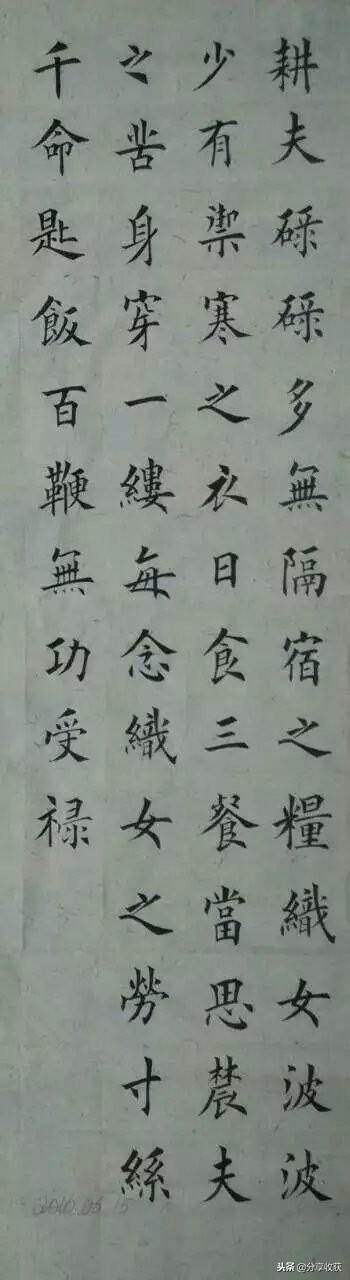 耕夫碌碌多無隔宿之糧織女波波
少有禦寒之衣日食三餐當思農夫
之苦身穿一縷每念織女之勞寸絲
千命匙飯百鞭無功受禄
头条 @分享收获